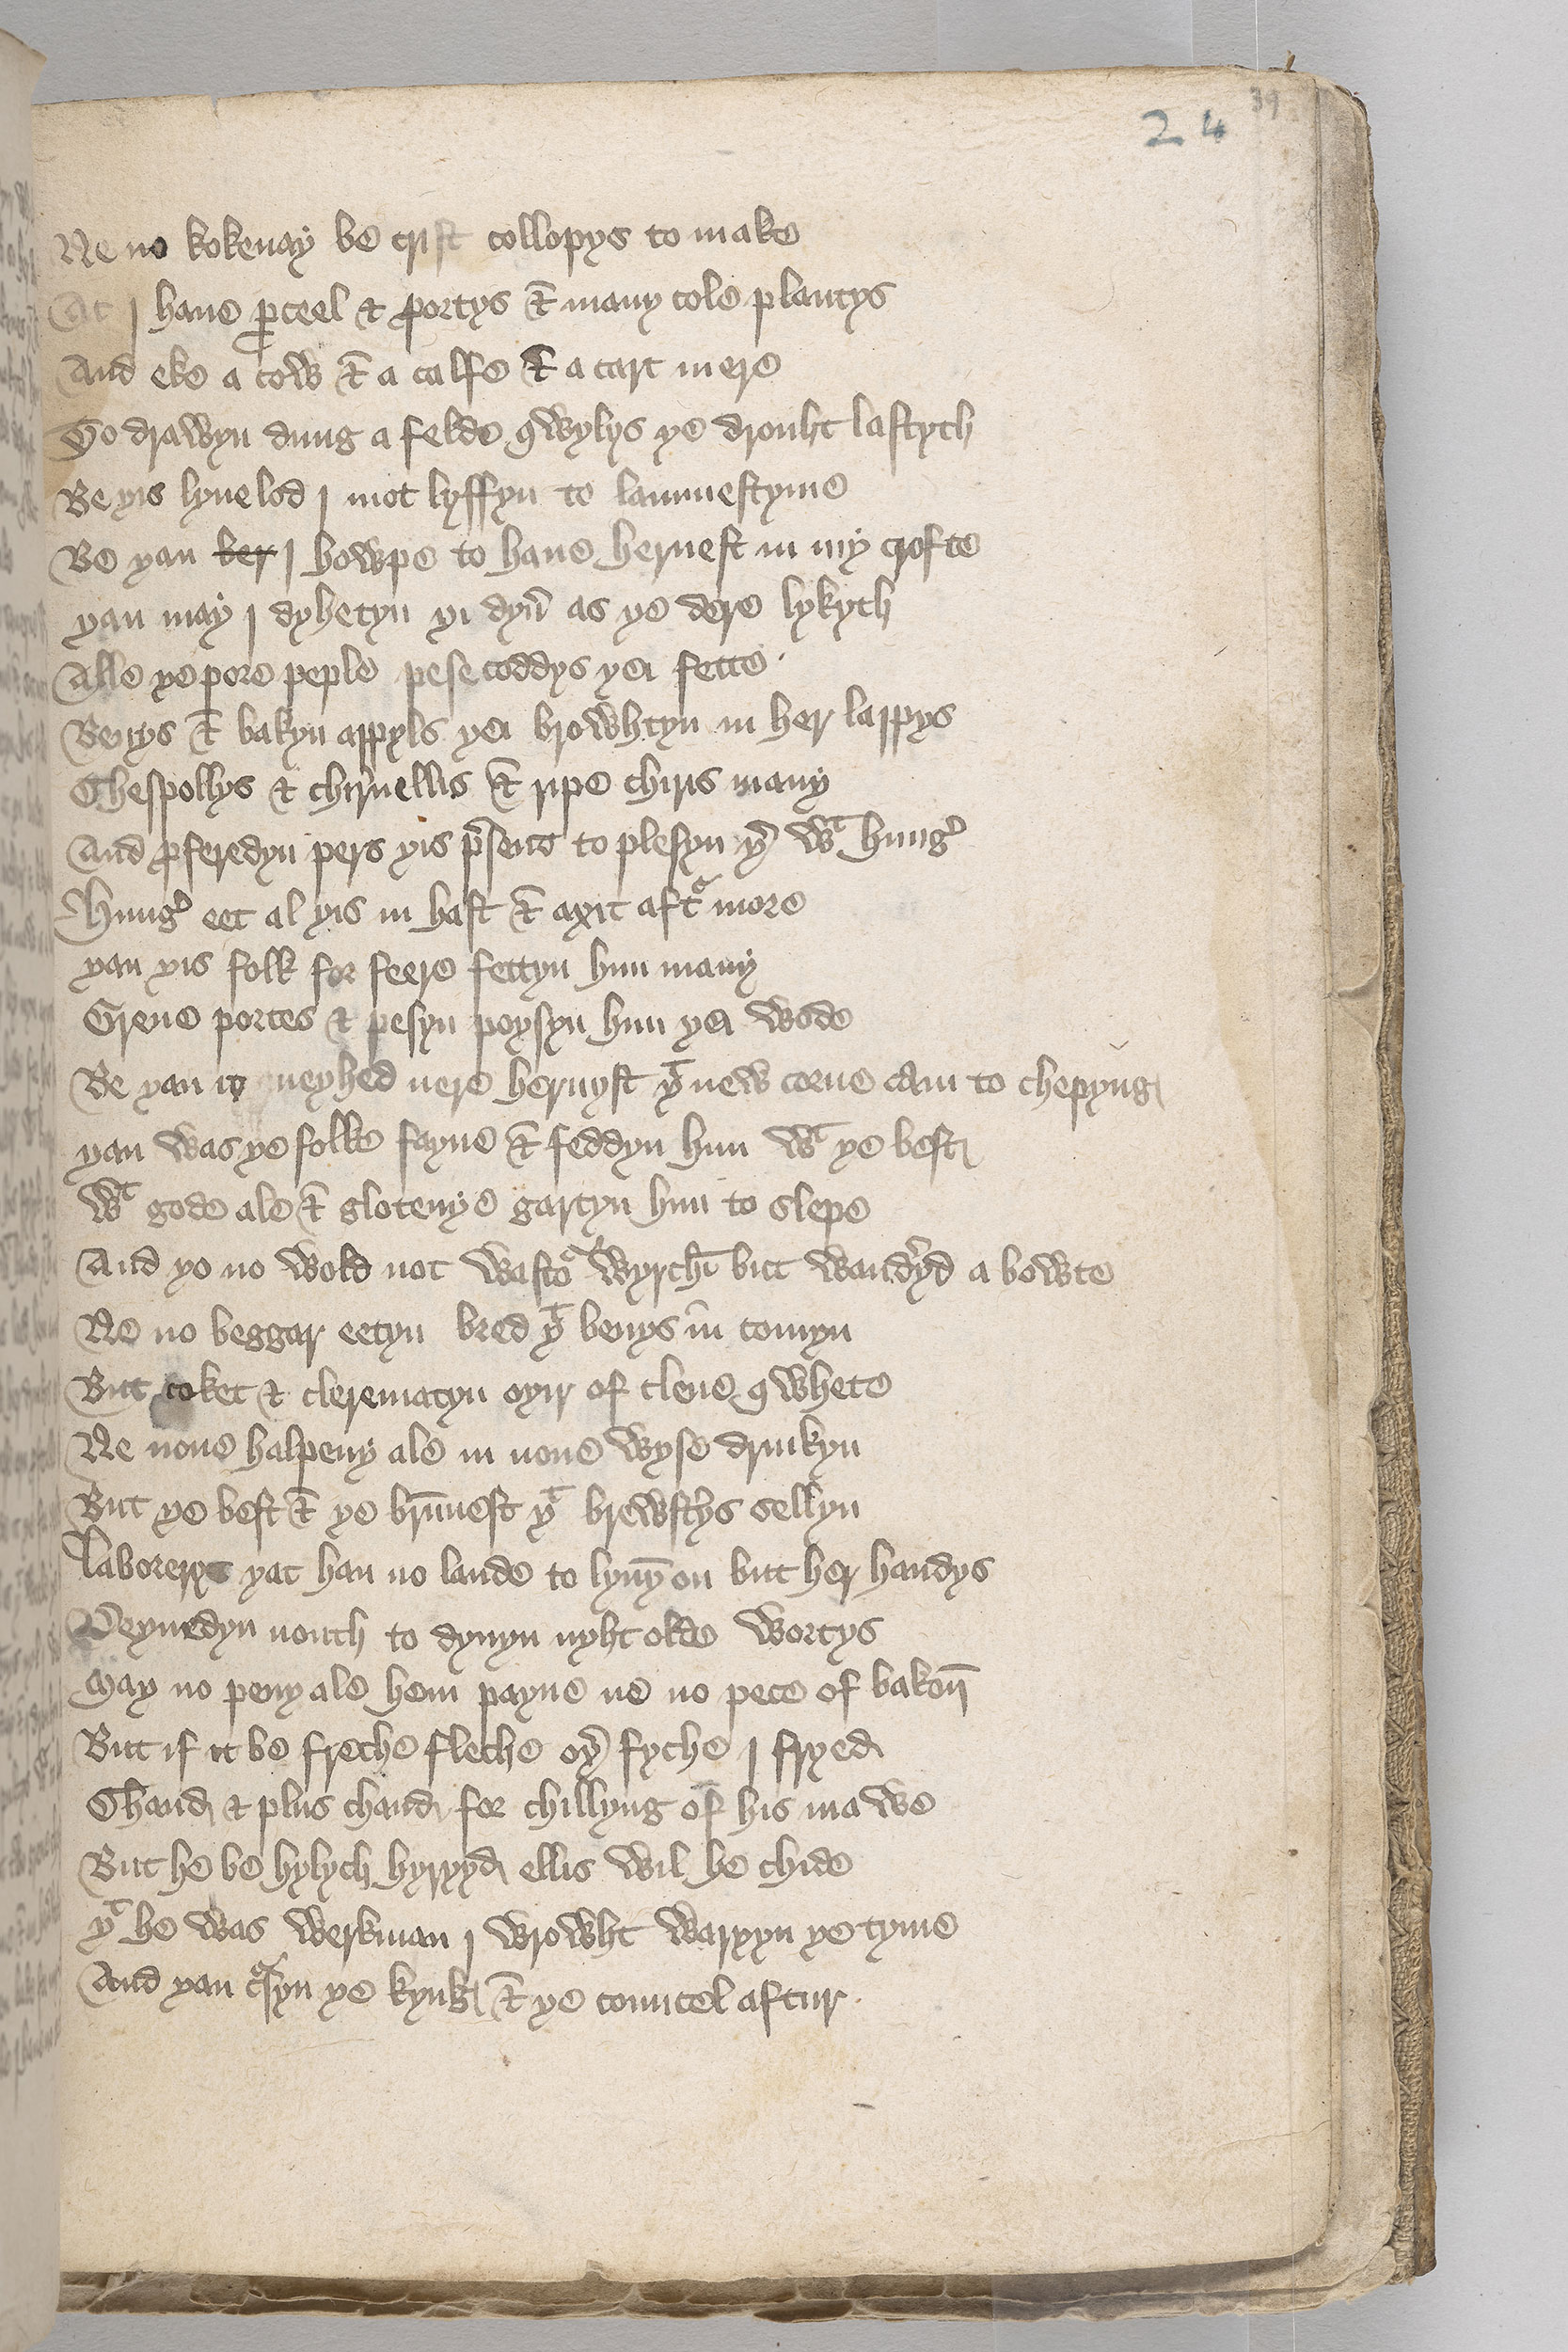 24
39
Ne no kokenay be crist collopys to make
At I haue ꝑceel & portys & many cole plantys
And eke a cow & a calfe & a cart mere
To drawyn dung a felde qwylys ye drouht lastyth
Be yis lyuelod I mot lyffyn to lammestyme
Be yan ber I howpe to haue heruest in my crofte
yan may I dyhetyn yi dyn̄ as ye dere lykyth
Alle ye pore peple pesecoddys yei fette
Benys & bakyn appyls yei browhtyn in her lappys
Chespollys & chiruellis & ripe chiris many
And ꝓferedyn pers yis p̄sent to plesyn yʳ wᵗ hungʳ
Hungʳ eet al yis in hast & axit aftʳ more
yan yis folk for feere fettyn him many
Grene portes & pesyn poysyn him yei wode
Be yan it neyhed nere heruyst yᵗ new corne cam to chepyng
yan was ye folke fayne & feddyn him wᵗ ye best
Wᵗ gode ale & glotenye gartyn him to slepe
And yo no wold not wastoʳ wyrchī but wandʳyd a bowte
Ne no beggar eetyn bred yᵗ benys in comyn
But coket & clerematyn oyir of clene qwhete
Ne none halpeny ale in none wyse drinkyn
But ye best & ye brūnest yᵗ brewstʳys sellyn
Laborerys yat han no lande to lyuyn on but her handys
Deynedyn nouth to dynyn nyht olde wortys
May no peny ale hem payne ne no pece of bakon̄
But if it be freche fleche oyʳ fyche I fryed
Chaud & plus chaud for chillyng of his mawe
But he be hylych hyryyd ellis wil he chide
yᵗ he was werkman I wrowht waryyn ye tyme
And yan cʳsyn ye kyng & ye councel aftur